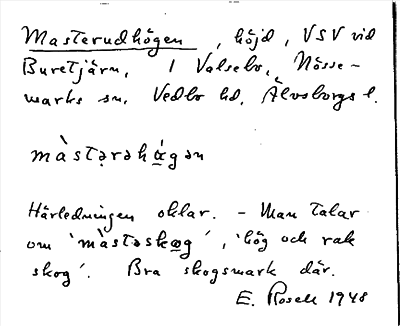 Masterudhögen, höjd, VSV vid
Buretjärn, i Valsebo, Nösse-
marks sn. Vedbo hd, Älvsborgs l.
màstərəhǿgən
Härledningen oklar. - Man talar
om 'màstəskog', 'hög och rak
skog'. Bra skogsmark där.
E. Rosell 1948